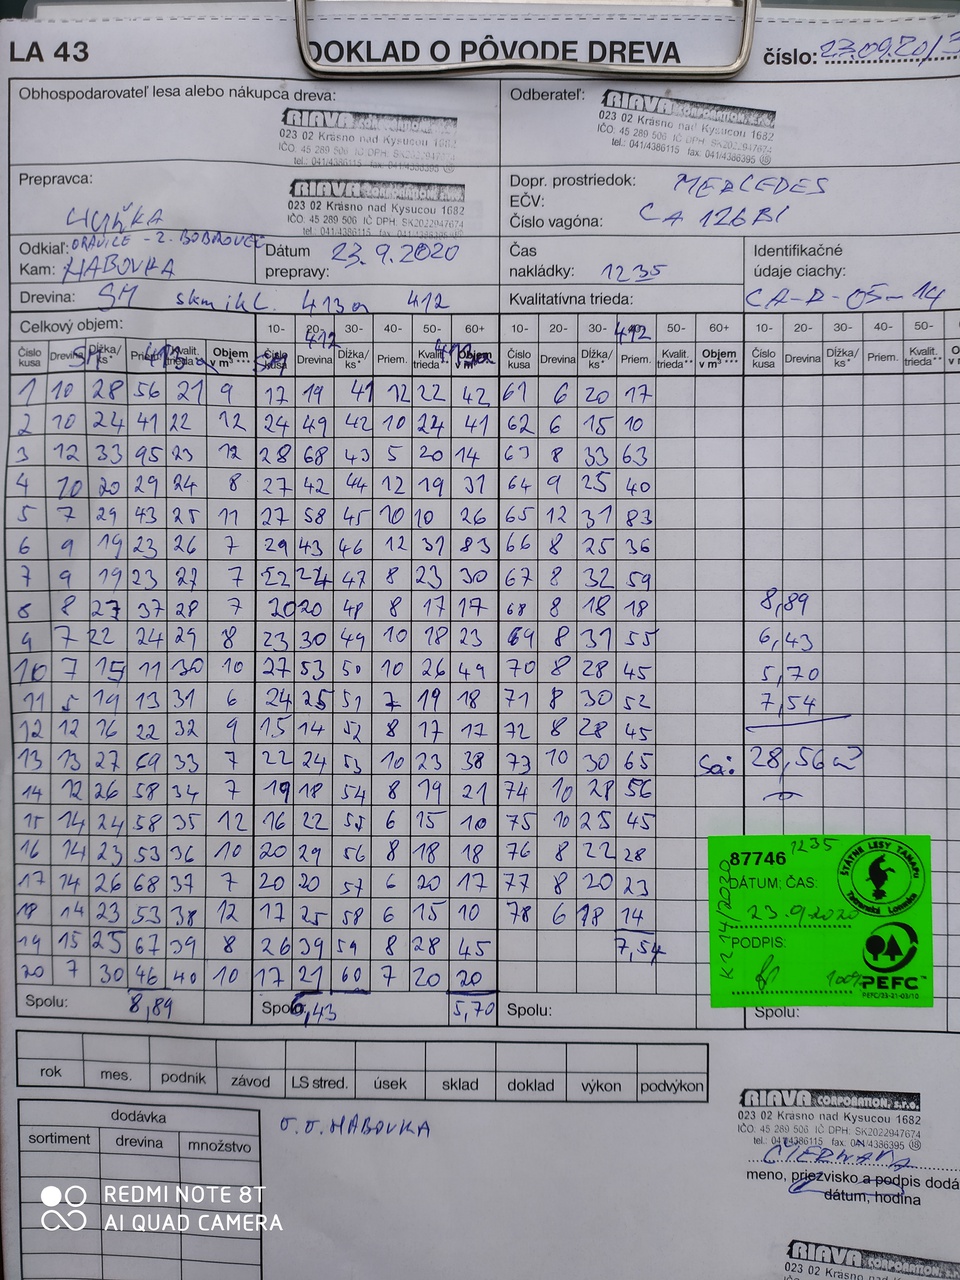 LA 43
DOKLAD O PÔVODE DREVA
číslo: 23.09.20/3
Obhospodarovateľ lesa alebo nákupca dreva:
RIAVA CORPORATION, s.r.o.
023 02 Krásno nad Kysucou 1682
IČO: 45 289 506 IČ DPH: SK2022947674
tel.: 041/4386115 fax: 041/4386395
Odberateľ:
RIAVA CORPORATION, s.r.o.
023 02 Krásno nad Kysucou 1682
IČO: 45 289 506 IČ DPH: SK2022947674
tel.: 041/4386115 fax: 041/4386395
Prepravca:
RIAVA CORPORATION, s.r.o.
023 02 Krásno nad Kysucou 1682
IČO: 45 289 506 IČ DPH: SK2022947674
tel.: 041/4386115 fax: 041/4386395
Dopr. prostriedok: MERCEDES
EČV:
Číslo vagóna: CA 126BI
Odkiaľ: ORAVICE - Z. BOBROVEC
Kam: HABOVKA
Dátum prepravy: 23.9.2020
Čas nakládky: 1235
Identifikačné údaje ciachy:
CA-R-05-14
Drevina: SM 413a 412
Kvalitatívna trieda:
Celkový objem: 10- 20- 30- 40- 50- 60+ 10- 20- 30- 40- 50- 60+ 10- 20- 30- 40- 50-
412 412
Číslo kusa Drevina Dĺžka/ks* Priem. Kvalit. trieda** Objem v m³*** Číslo kusa Drevina Dĺžka/ks* Priem. Kvalit. trieda** Objem v m³*** Číslo kusa Drevina Dĺžka/ks* Priem. Kvalit. trieda** Objem v m³*** Číslo kusa Drevina Dĺžka/ks* Priem. Kvalit. trieda**
1 10 28 56 21 9 17 19 41 12 22 42 61 6 20 17
2 10 24 41 22 12 24 49 42 10 24 41 62 6 15 10
3 12 33 95 23 12 28 68 43 5 20 14 63 8 33 63
4 10 20 29 24 8 27 42 44 12 19 31 64 9 25 40
5 7 29 43 25 11 27 58 45 10 10 26 65 12 31 83
6 9 19 23 26 7 29 43 46 12 31 83 66 8 25 36
7 9 19 23 27 7 22 24 47 8 23 30 67 8 32 59
8 8 27 37 28 7 20 20 48 8 17 17 68 8 18 18 8,89
9 7 22 24 29 8 23 30 49 10 18 23 69 8 31 55 6,43
10 7 15 11 30 10 27 53 50 10 26 49 70 8 28 45 5,70
11 5 19 13 31 6 24 25 51 7 19 18 71 8 30 52 7,54
12 12 16 22 32 9 15 14 52 8 17 17 72 8 28 45
13 13 27 69 33 7 22 24 53 10 23 38 73 10 30 65 Sa: 28,56 m³
14 12 26 58 34 7 19 18 54 8 19 21 74 10 28 56
15 14 24 58 35 12 16 22 55 6 15 10 75 10 25 45
16 14 23 53 36 10 20 29 56 8 18 18 76 8 22 28
17 14 26 68 37 7 20 20 57 6 20 17 77 8 20 23
18 14 23 53 38 12 17 25 58 6 15 10 78 6 18 14
19 15 25 67 39 8 26 39 59 8 28 45 7,54
20 7 30 46 40 10 17 21 60 7 20 20
Spolu: 8,89 Spolu: 6,43 5,70 Spolu: Spolu:
87746 1235
DÁTUM; ČAS:
23.9.2020
PODPIS:
100%
K214/2020
ŠTÁTNE LESY TANAPu
Tatranská Lomnica
PEFC™
PEFC/23-21-03/10
rok mes. podnik závod LS stred. úsek sklad doklad výkon podvýkon
dodávka
sortiment drevina množstvo
O.O. HABOVKA
RIAVA CORPORATION, s.r.o.
023 02 Krásno nad Kysucou 1682
IČO: 45 289 506 IČ DPH: SK2022947674
tel.: 041/4386115 fax: 041/4386395
meno, priezvisko a podpis dodá
dátum, hodina
RIAVA CORPORATION, s.r.o.
023 02 Krásno nad Kysucou 1682
REDMI NOTE 8T
AI QUAD CAMERA